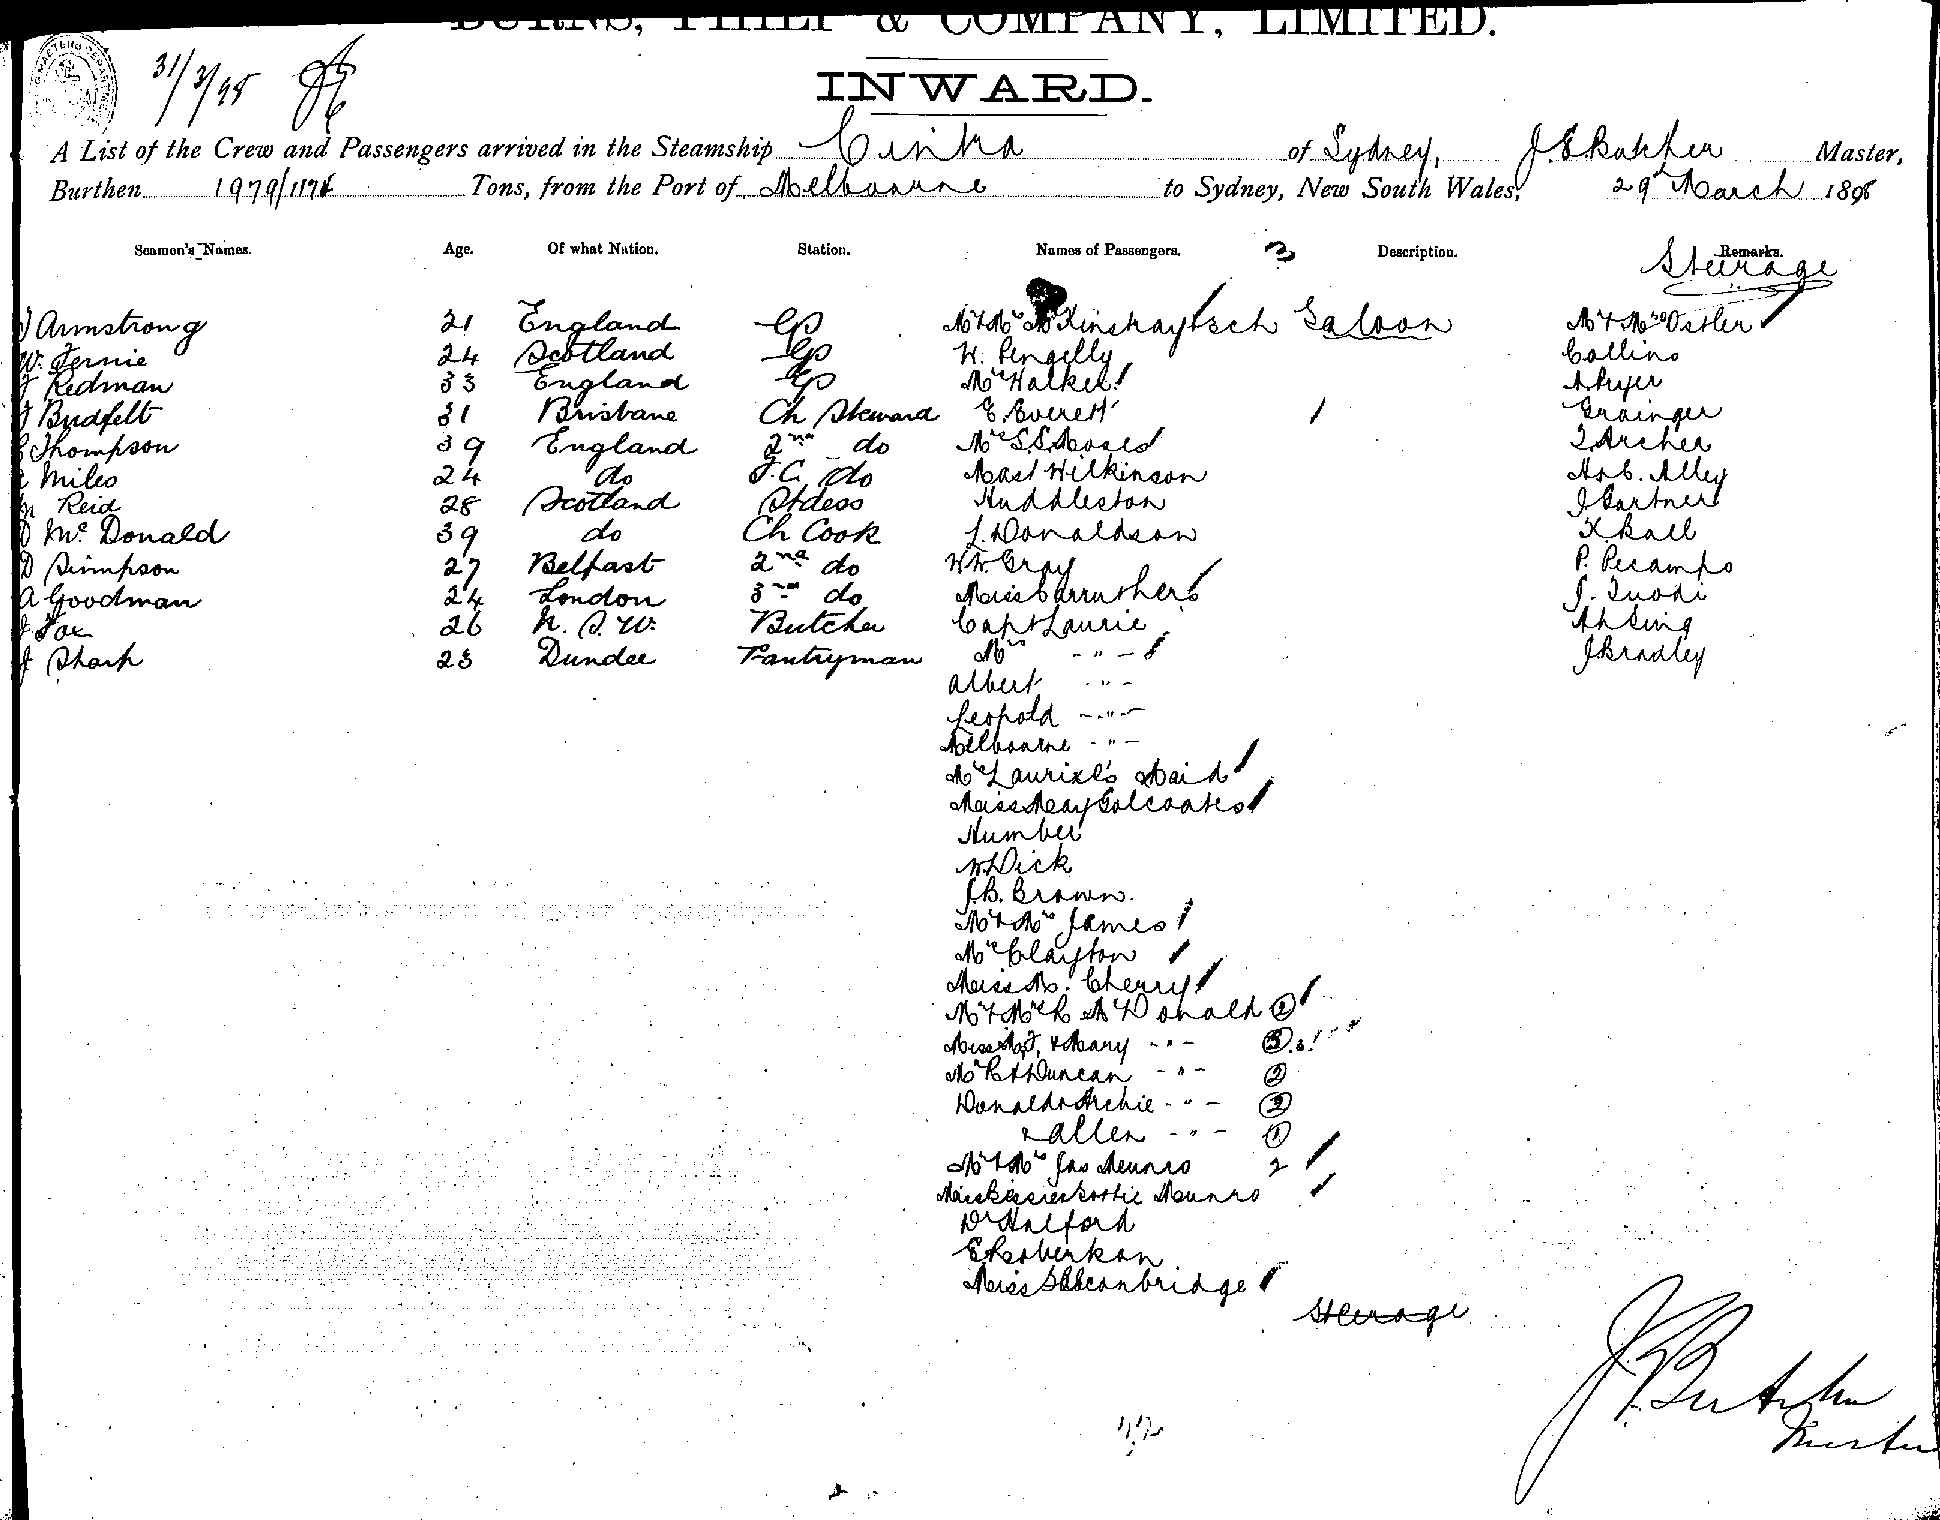 BURNS, PHILP & COMPANY, LIMITED.
31/3/98
INWARD.
A List of the Crew and Passengers arrived in the Steamship Cintra of Sydney, J. E. Butcher Master,
Burthen 1979/1174 Tons, from the Port of Melbourne to Sydney, New South Wales, 29 March 1898
Seamen's Names. Age. Of what Nation. Station. Names of Passengers. 3 Description. Remarks.
Steerage
J Armstrong 21 England Saloon Mr & Mrs Ostler
W. Fernie 24 Scotland H. Pengelly Collins
J Redman 33 England Mrs Walker A Pryer
J Budfelt 31 Brisbane Ch Steward E. Everett Grainger
Thompson 39 England 2nd do Archer
Miles 24 do F.C. do Mast Wilkinson Alley
Reid 28 Scotland Stdess Huddleston J Gartner
D McDonald 39 do Ch Cook L. Donaldson K Ball
D Simpson 27 Belfast 2nd do W. Gray P. Pecampo
A Goodman 24 London 3rd do Miss Carruthers
J Fox 26 N. S. W. Butcher Capt Laurie Ah Sing
J Sharp 23 Dundee Pantryman Mrs -"- J Bradley
Albert -"-
Leopold -"-
Melbourne -"-
Maid
Miss May Colcoates
Humber
W Dick
J. B. Brown.
Mr & Mrs James
Mrs Clayton
Miss M. Cherry
Mr & Mrs R McDonald 2
& Mary -"- 3
Duncan -"- 2
Donald & Archie -"- 2
& Allen -"- 1
Mr & Mrs Jas Munro 2
Munro
Dr Halford
E Robertson
Miss
Steerage
J E Butcher
Master